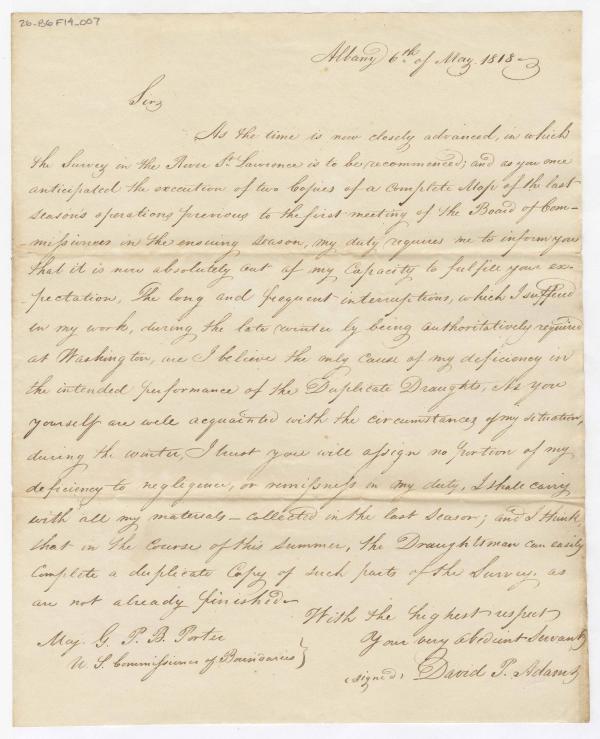 26-B6F14_007
Albany 6th of May 1818
Sir,
As the time is now closely advanced, in which
the Survey in the River St. Lawrence is to be recommenced; and as you once
anticipated the execution of two Copies of a complete Map of the last
season's operations previous to the first meeting of the Board of Com-
-missioners in the ensuing season, my duty requires me to inform you
that it is now absolutely out of my Capacity to fulfill your ex-
-pectation. The long and frequent interruptions, which I suffered
in my work, during the late winter by being authoritatively required
at Washington, are I believe the only cause of my deficiency in
the intended performance of the Duplicate Draughts. As you
yourself are well acquainted with the circumstances of my situation,
during the winter, I trust you will assign no portion of my
deficiency to negligence, or remissness in my duty. I shall carry
with all my materials - collected in the last season; and I think
that in the course of this summer, the Draughtsman can easily
complete a duplicate Copy of such parts of the Survey, as
are not already finished.
With the highest respect
Your very obedient Servant
(signed) David P. Adams
Maj. G. P. B. Porter
U. S. Commissioner of Boundaries }